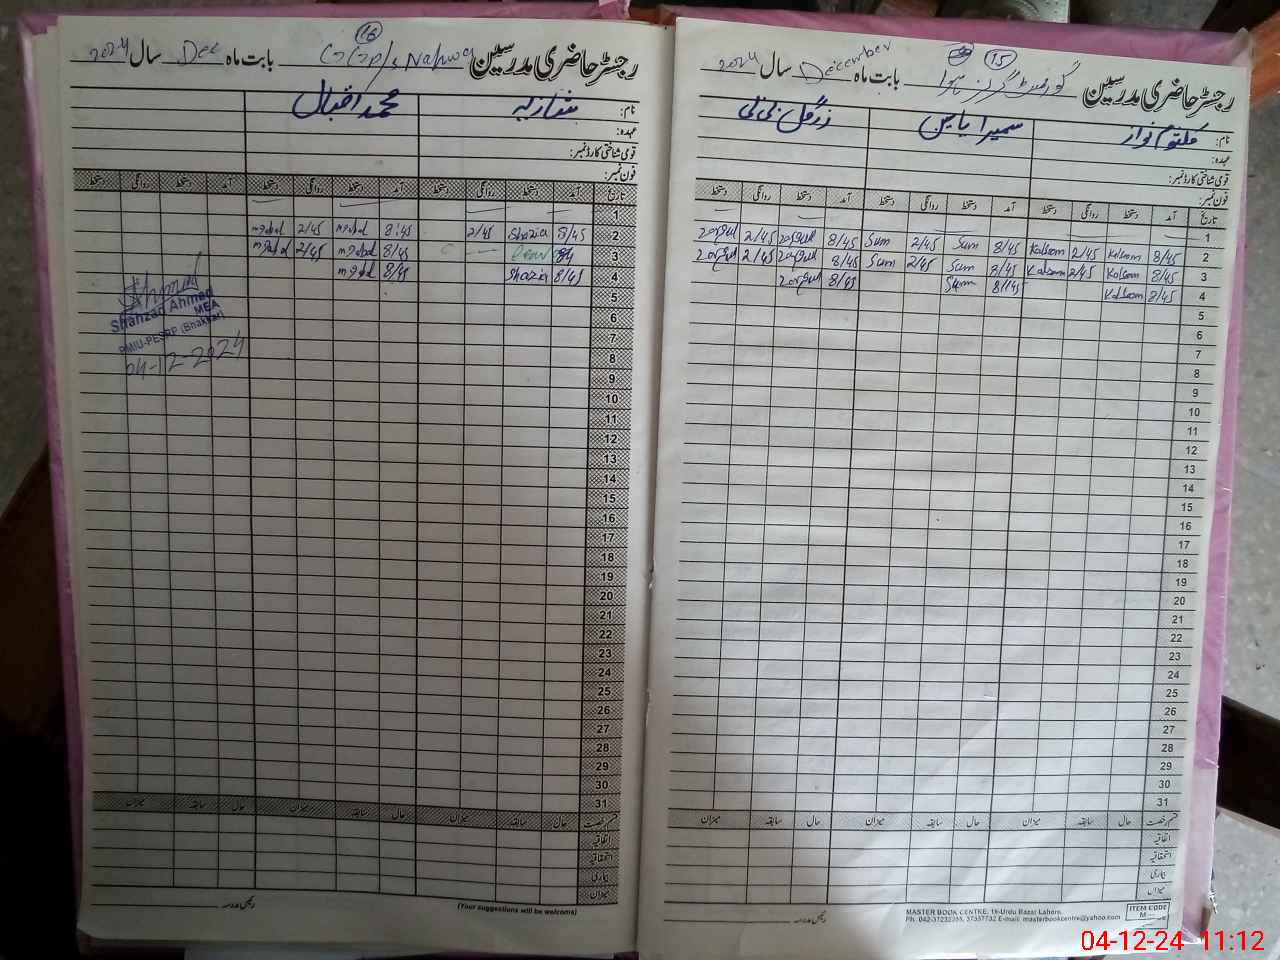 رجسٹر حاضری مدرسین گورنمنٹ گرلز بابت ماہ December سال 2024
15
نام: کلثوم نواز سمیرا یاسین زرگل بی بی
عہدہ:
قومی شناختی کارڈ نمبر:
فون نمبر:
تاریخ آمد دستخط روانگی دستخط آمد دستخط روانگی دستخط آمد دستخط روانگی دستخط
1
2 8/45 Kalsom 2/45 Kalsom 8/45 Sum 2/45 Sum 8/45 zargul 2/45 zargul
3 8/45 Kalsom 2/45 Kalsom 8/45 Sum 2/45 Sum 8/45 zargul 2/45 zargul
4 8/45 Kalsom 8/45 Sum 8/45 zargul
5
6
7
8
9
10
11
12
13
14
15
16
17
18
19
20
21
22
23
24
25
26
27
28
29
30
31
قسم رخصت حال سابقہ میزان حال سابقہ میزان حال سابقہ میزان
اتفاقیہ
استحقاقیہ
بیماری
میزان
رئیس مدرسہ
MASTER BOOK CENTRE, 16-Urdu Bazar Lahore.
Ph. 042-37232355, 37357732 E-mail: masterbookcentre@yahoo.com
ITEM CODE
M
رجسٹر حاضری مدرسین GGP/s Nahwa بابت ماہ Dec سال 2024
16
نام: شازیہ محمد اقبال
عہدہ:
قومی شناختی کارڈ نمبر:
فون نمبر:
تاریخ آمد دستخط روانگی دستخط آمد دستخط روانگی دستخط آمد دستخط روانگی دستخط
1
2 8/45 Shazia 2/45 8:45 mqbal 2/45 mqbal
3 8/45 mqbal 2/45 mqbal
4 8/45 Shazia 8/45 mqbal
5
6
7
8
9
10
11
12
13
14
15
16
17
18
19
20
21
22
23
24
25
26
27
28
29
30
31
Shahzad Ahmed
MEA
PMIU-PESRP (Bhakkar)
04-12-2024
قسم رخصت حال سابقہ میزان حال سابقہ میزان حال سابقہ میزان
اتفاقیہ
استحقاقیہ
بیماری
میزان
رئیس مدرسہ
(Your suggestions will be welcome)
04-12-24 11:12